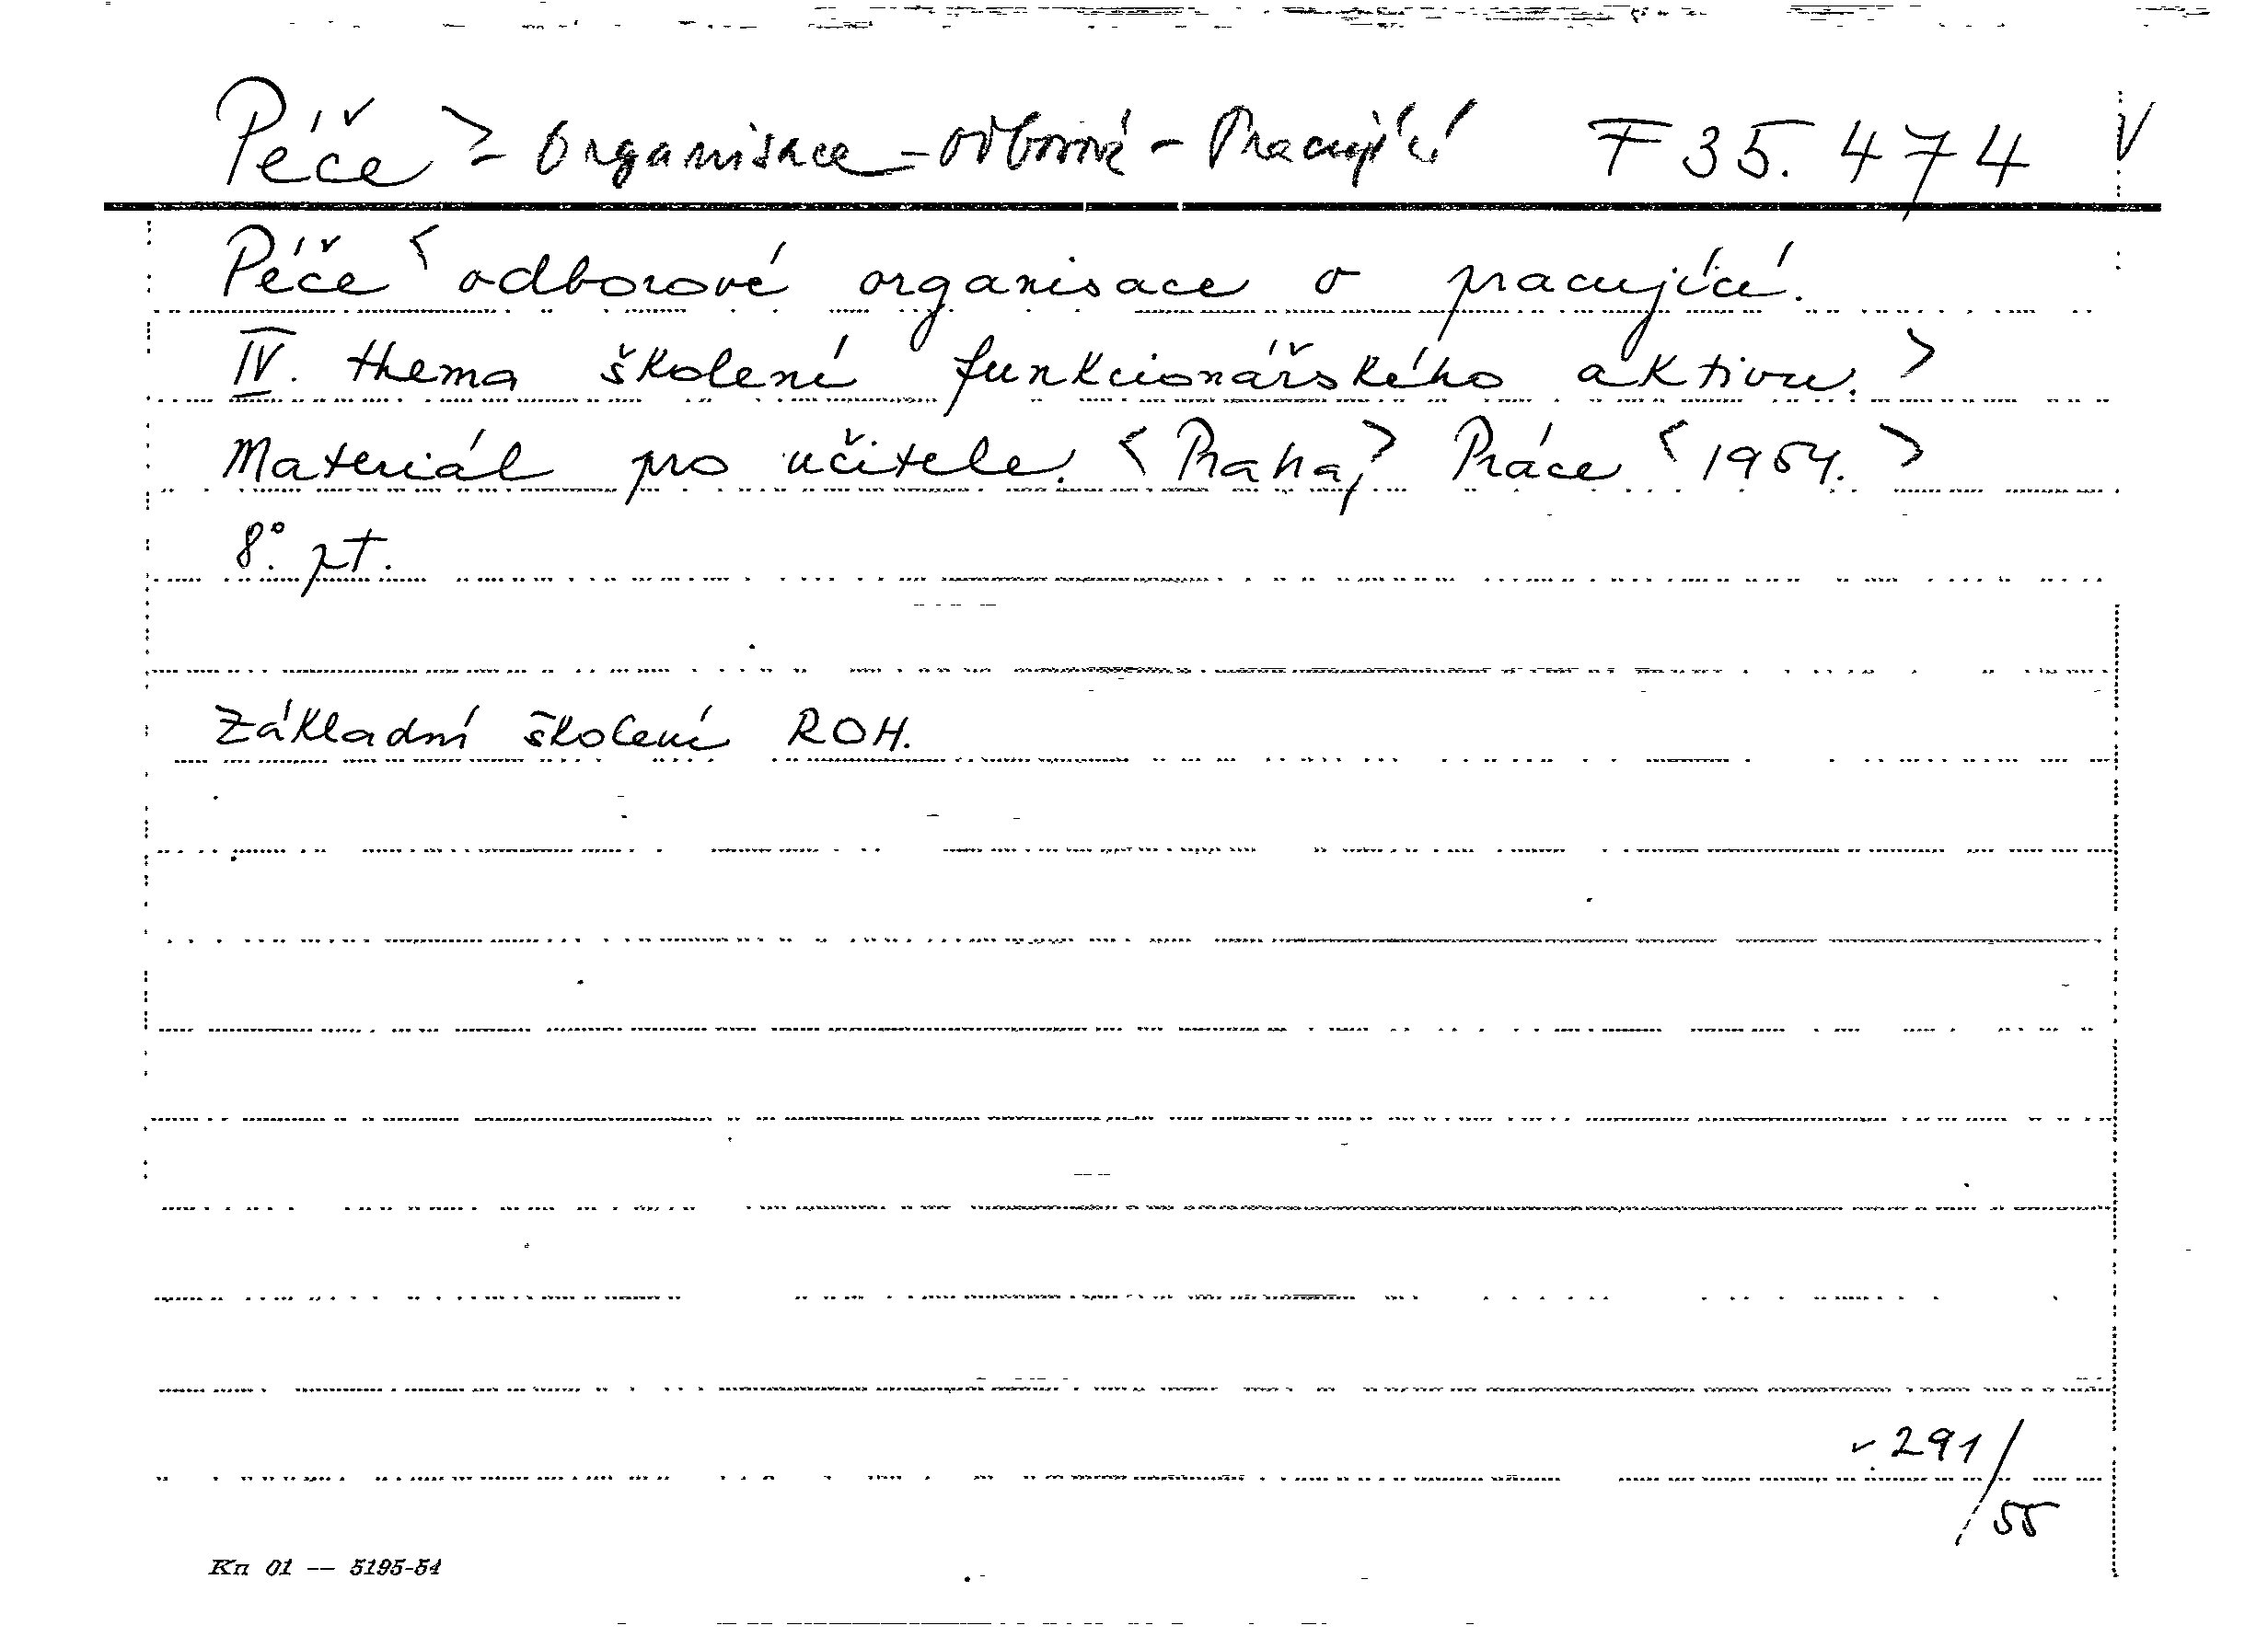 Péče > - Organisace - odborová - Pracující F 35.474 V
Péče < odborové organisace o pracující.
IV. thema školení funkcionářského aktivu. >
Materiál pro učitele. < Praha, > Práce < 1954. >
8°. pt.
Základní školení ROH.
v. 291/55
Kn 01 — 5195-54